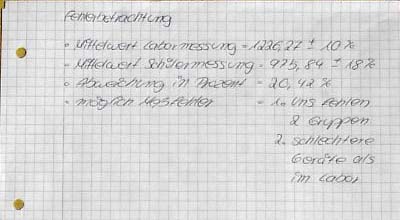 Fehlerbetrachtung
• Mittelwert Labormessung = 1226,27 ± 10 %
• Mittelwert Schülermessung = 975,84 ± 18 %
• Abweichung in Prozent = 20,42 %
• möglich Meßfehler = 1. uns fehlen
2 Gruppen
2. schlechtere
Geräte als
im Labor